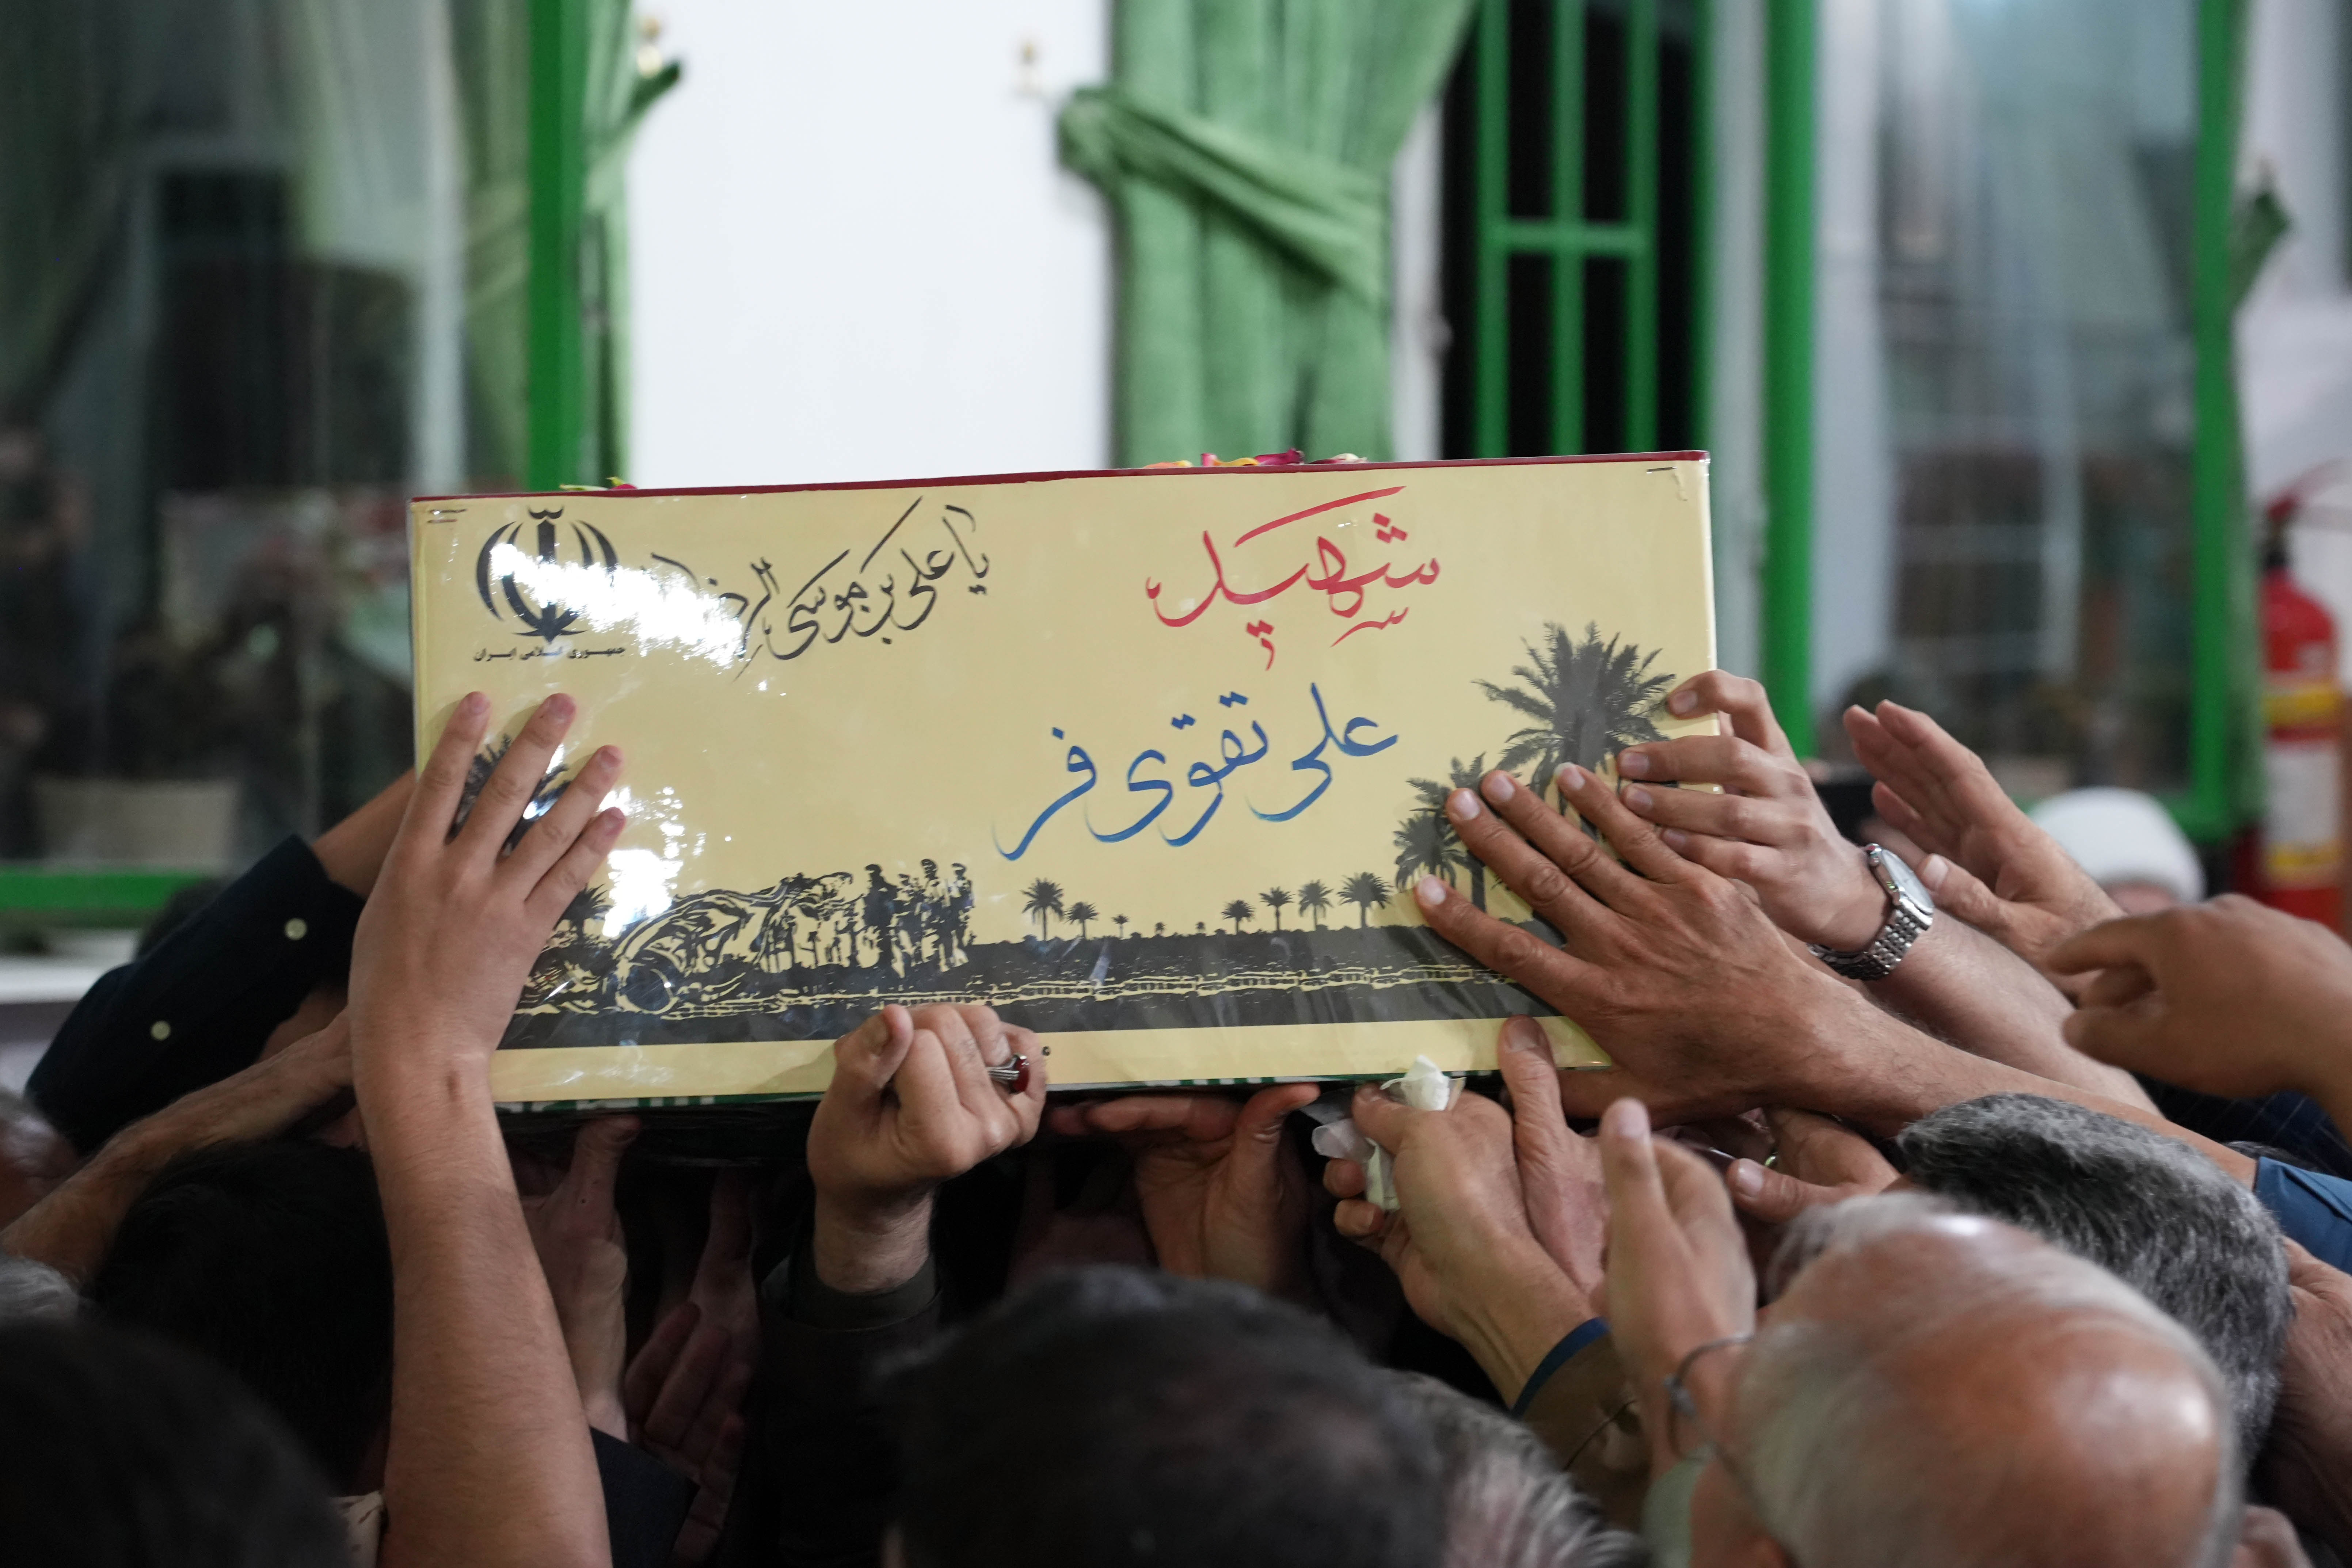 شهید
علی تقوی فر
یا علی بن موسی الرضا
جمهوری اسلامی ایران